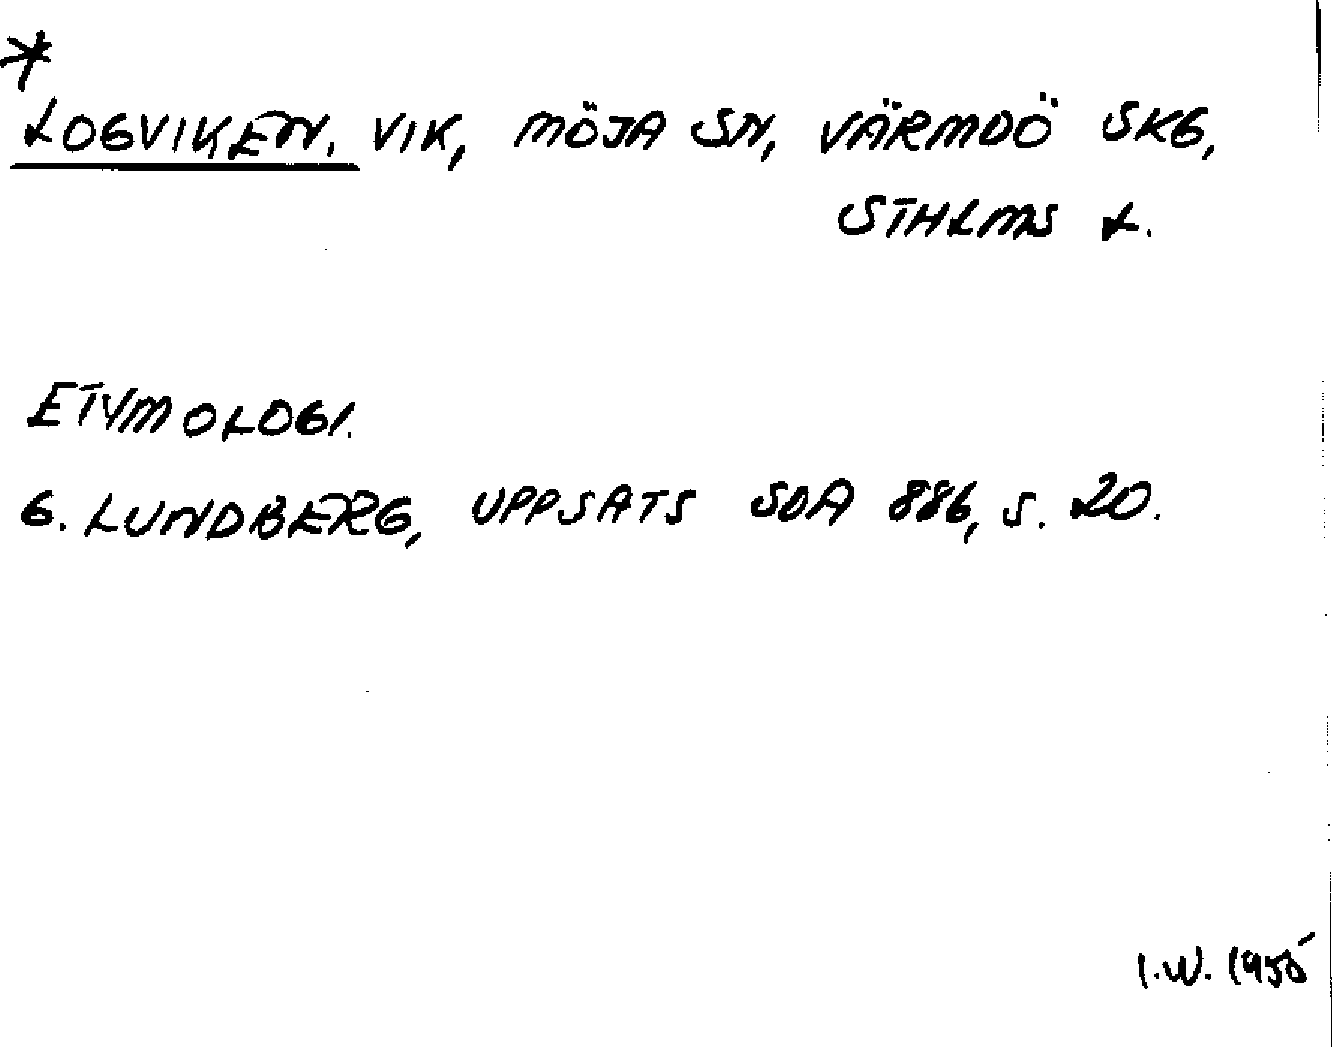 *
LOGVIKEN. VIK, MÖJA SN, VÄRMDÖ SKG,
STHLMS L.
ETYMOLOGI.
G. LUNDBERG, UPPSATS SOA 886, S. 20.
I.W. 1955